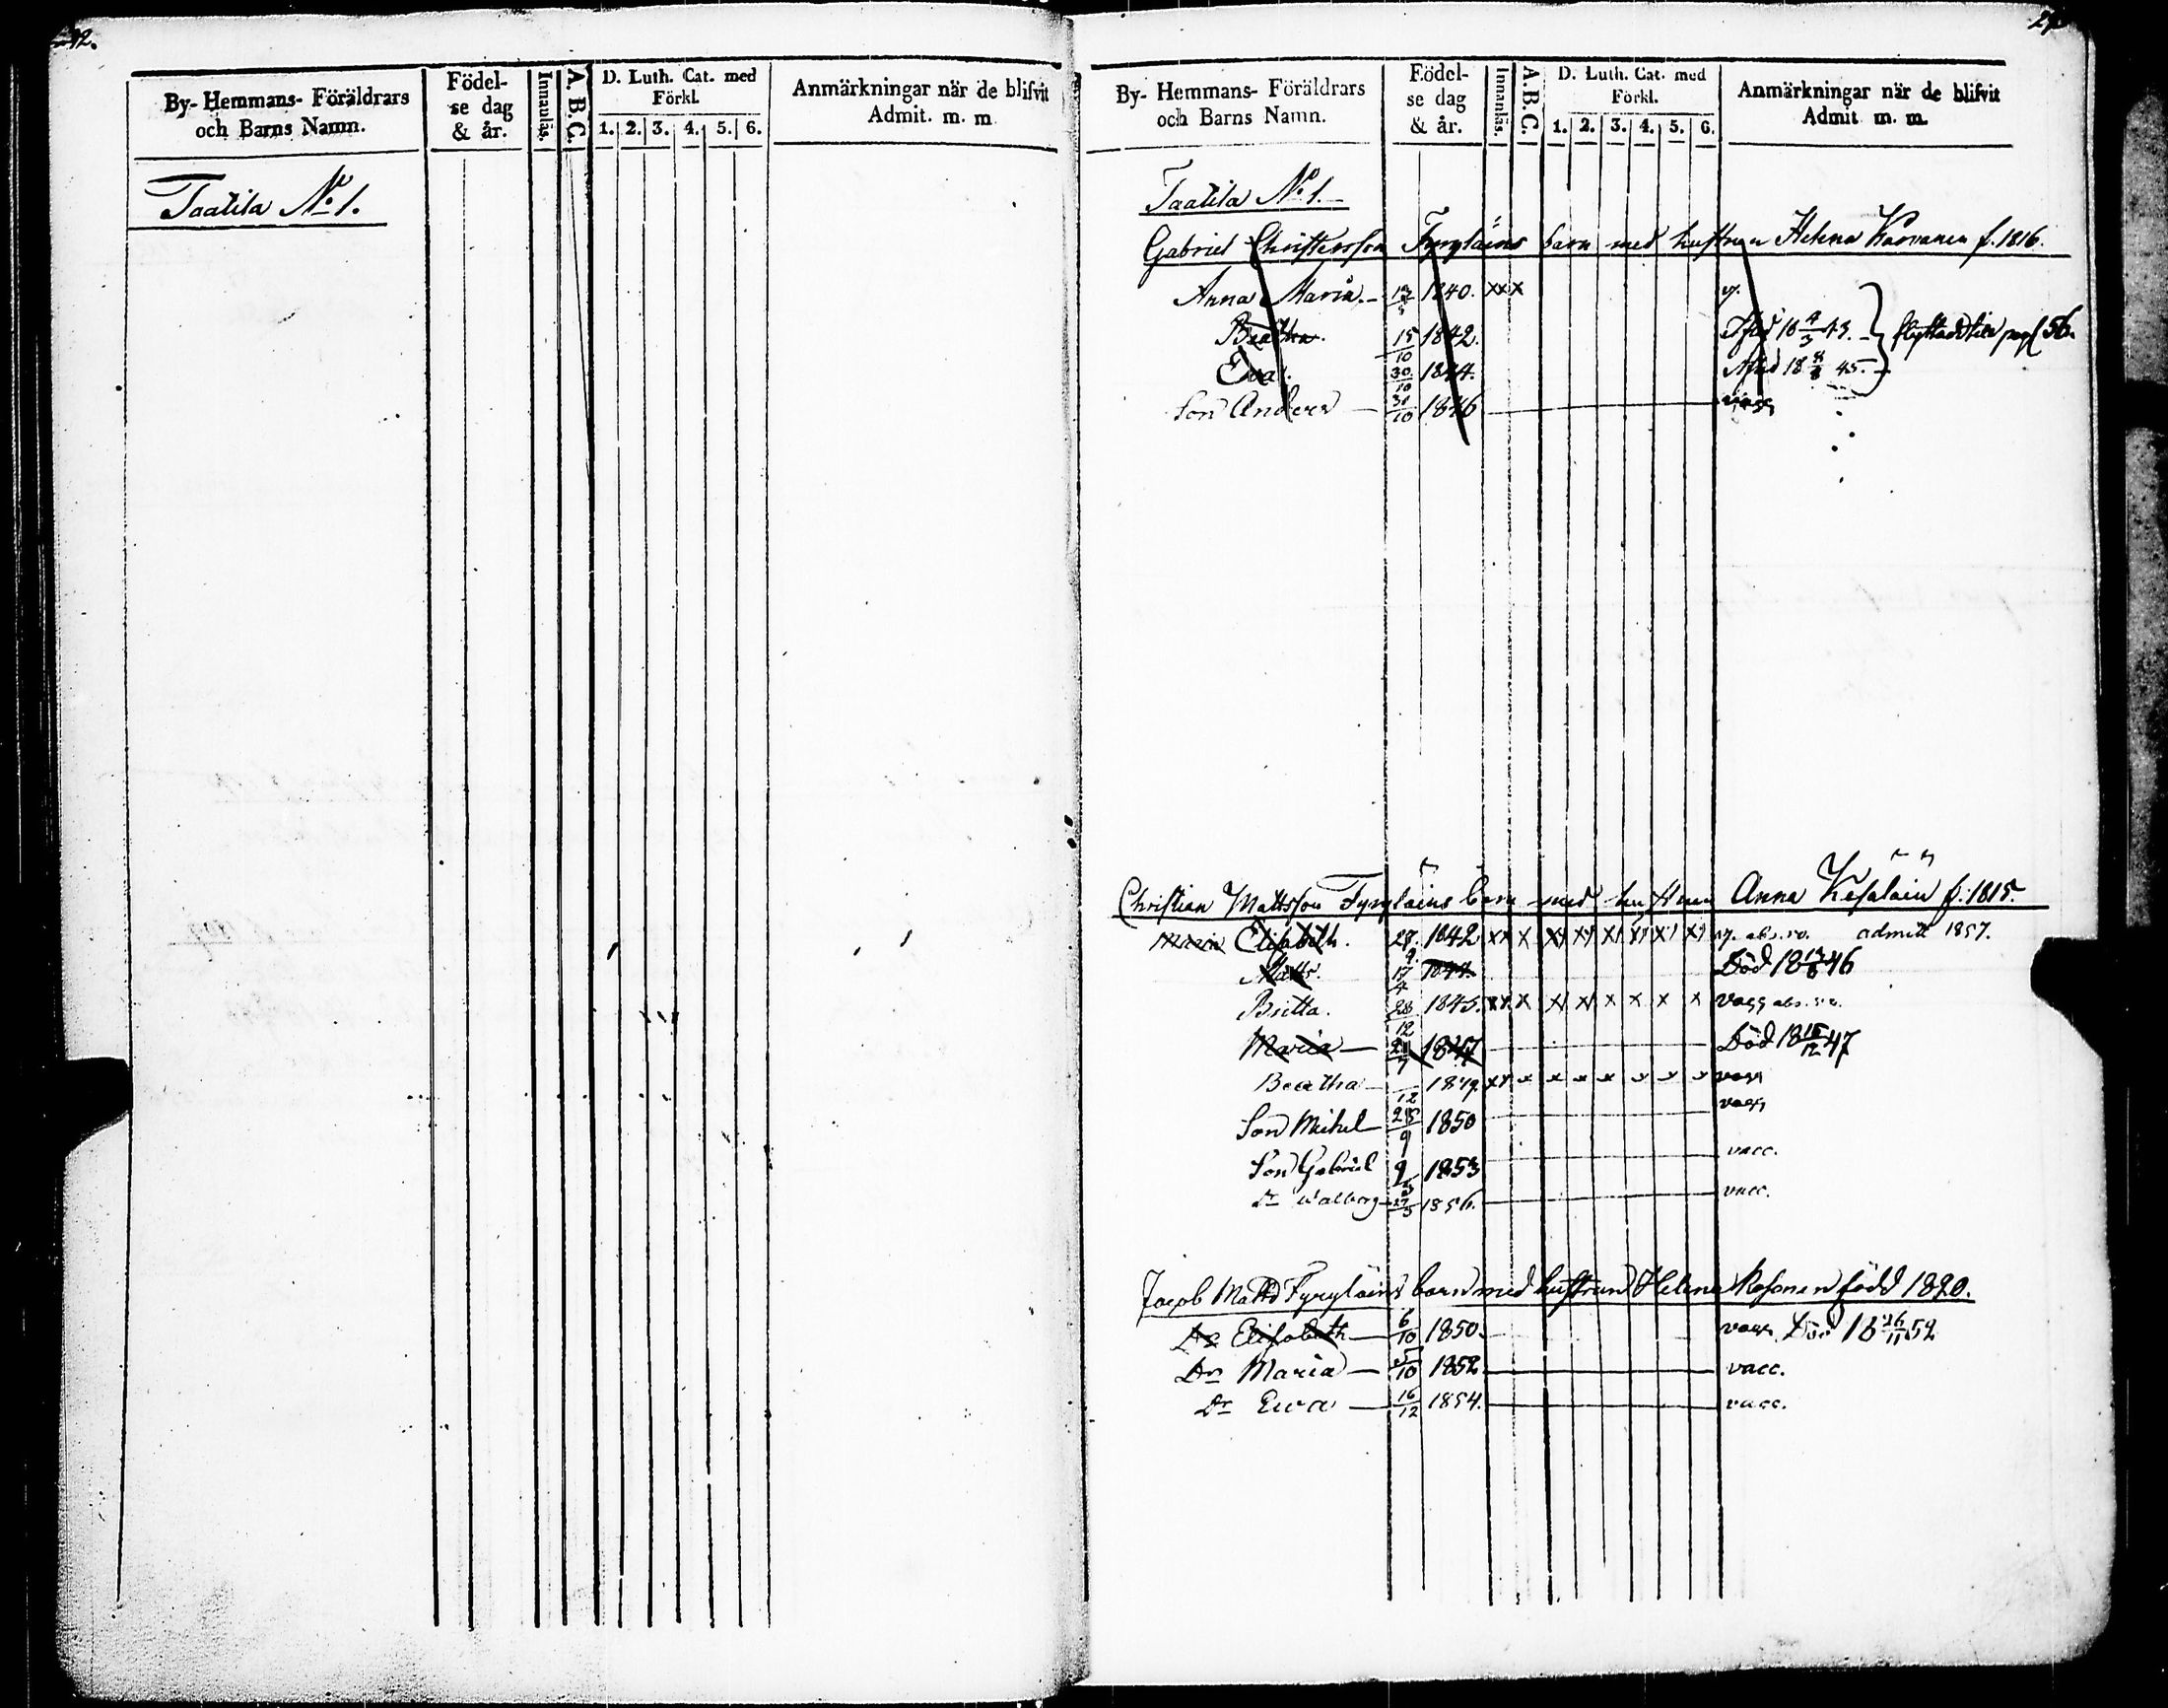 92.
By- Hemmans- Föräldrars
och Barns Namn.
Födel-
se dag
& år.
Innanläs.
A. B. C.
D. Luth. Cat. med
Förkl.
1. 2. 3. 4. 5. 6.
Anmärkningar när de blifvit
Admit. m. m
Taatila No 1.
By- Hemmans- Föräldrars
och Barns Namn.
Födel-
se dag
& år.
Innanläs.
A. B. C.
D. Luth. Cat. med
Förkl.
1. 2. 3. 4. 5. 6.
Anmärkningar när de blifvit
Admit. m. m.
Taatila No 1.
Gabriel Christersson Tyryläins barn med hustrun Helena Karvanen f. 1816.
Anna Maria. 1840. xx x
Beatha. 15/10 1842. 43. flyttade till pag 56.
Eva. 30/10 1844. 45.
Son Anders 1846 vacc
Christian Mattsson Tyryläins barn med hustrun Anna f. 1815.
Maria Elisabeth. 28/9 1842 xx x x x x x x x abs. admitt 1857.
Matts. 17/4 1844. Död 18 46
Britta. 28/12 1845. xx x x x x x x x vacc abs.
Maria 1847 Död 18 15/12 47
Beatha 12 1849. xx x x x x x x x vacc
Son Mikel 28/9 1850 vacc
Son Gabriel 9/3 1853 vacc.
Dr Walborg 27/5 1856. vacc.
Jacob Matts Tyryläins barn med hustrun Helena Rosonen född 1820.
Dr Elisabeth 6/10 1850. vacc Död 18 26/11 52
Dr Maria 5/10 1852 vacc.
Dr Ewa 16/12 1854. vacc.